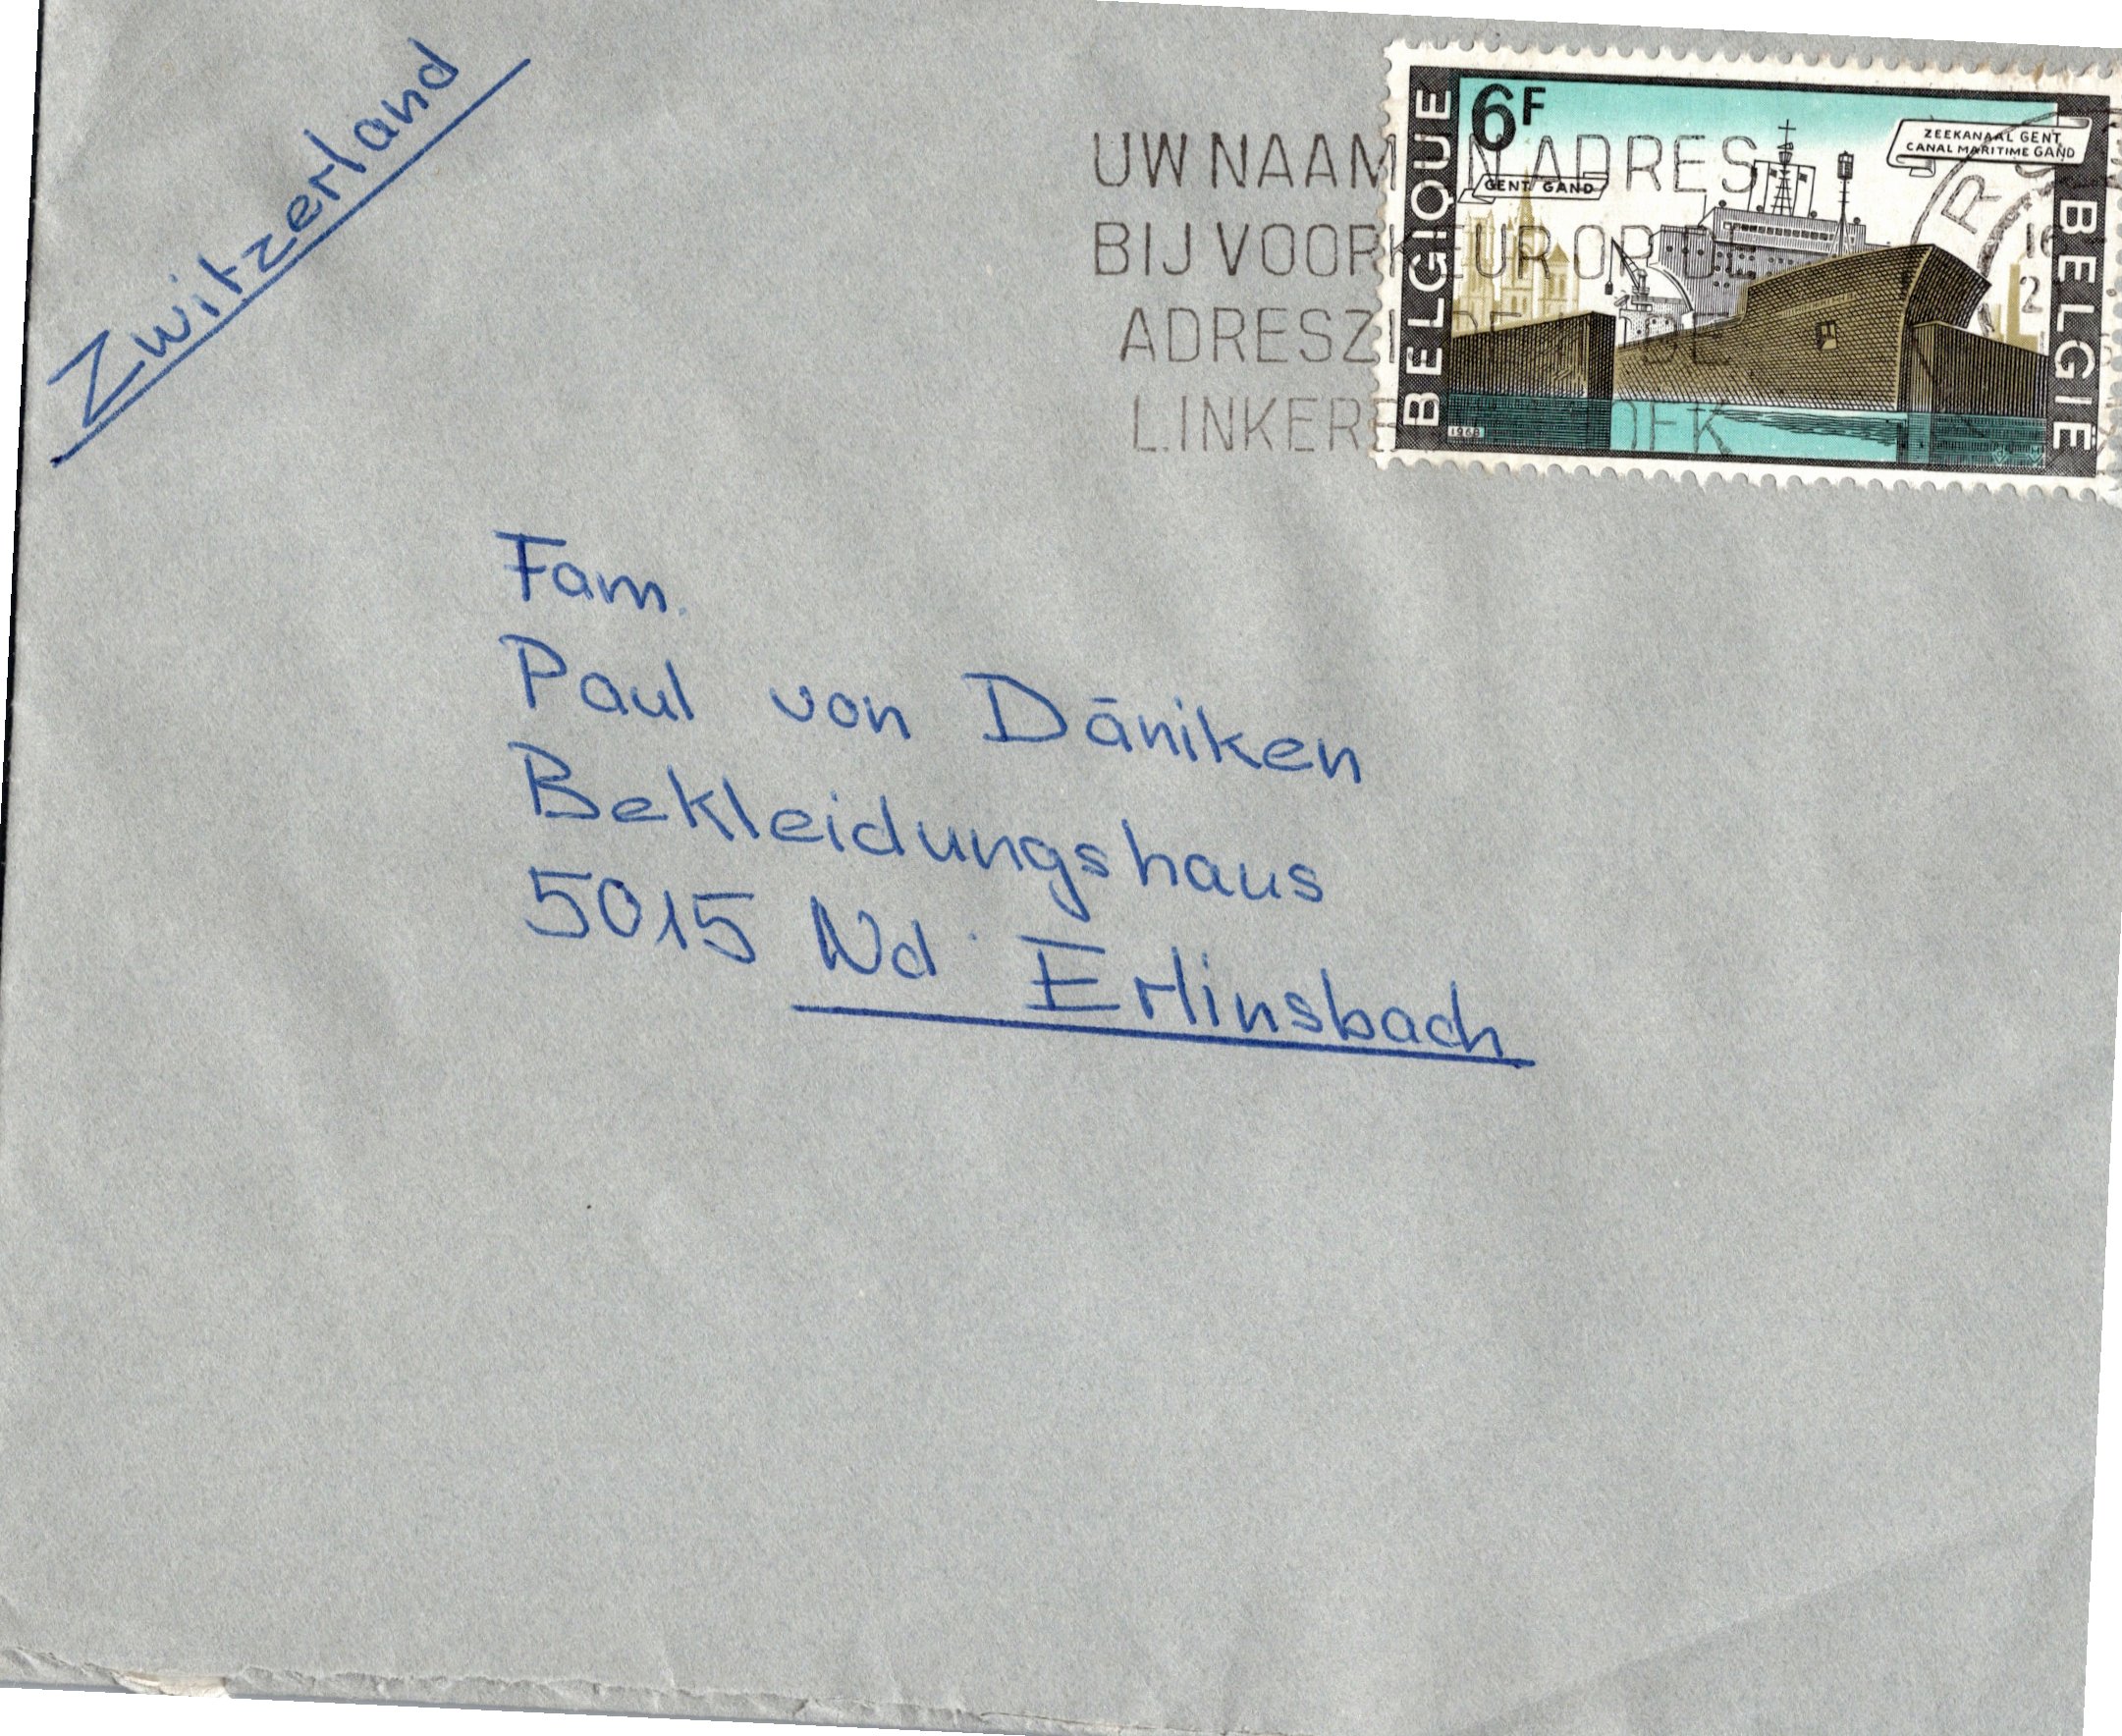 Zwitzerland
UW NAAM EN ADRES
BIJ VOORKEUR OP DE
ADRESZIJDE IN DE
LINKERBOVENHOEK
6F
BELGIQUE
BELGIË
GENT GAND
ZEEKANAAL GENT
CANAL MARITIME GAND
1968
Fam.
Paul von Däniken
Bekleidungshaus
5015 Nd Erlinsbach